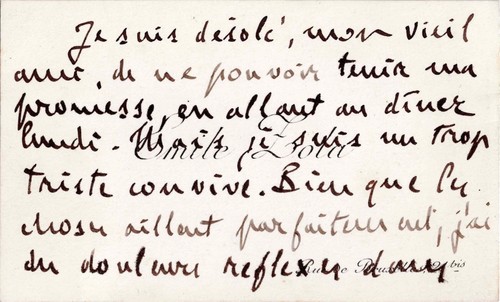 Je suis désolé, mon vieil
ami, de ne pouvoir tenir ma
promesse, en allant au dîner
lundi. Mais je suis un trop
Emile Zola
triste convive. Bien que les
choses aillent parfaitement, j'ai
des douleurs reflexes dans
Rue de bis